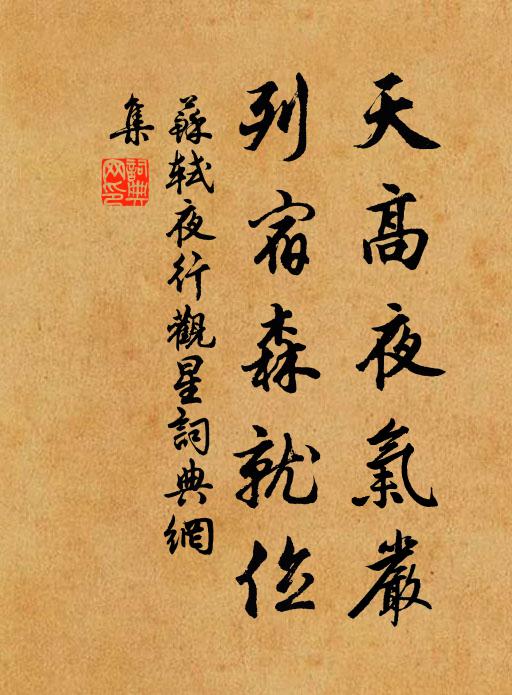 天高夜氣嚴
列宿森就位
蘇軾夜行觀星詞典網
集
詞典
网印